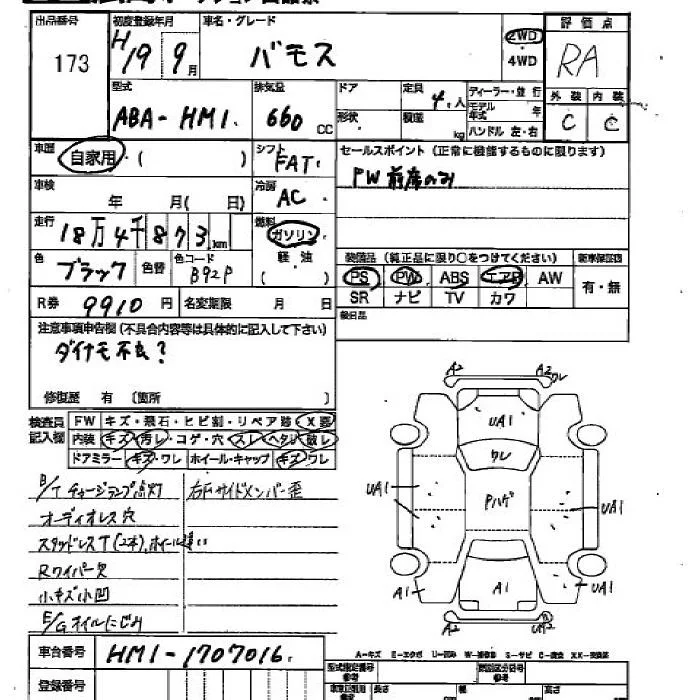 出品番号 初度登録年月 車名・グレード 評価点
173 H19 9月 バモス 2WD・4WD RA
型式 排気量 ドア 定員 ディーラー・並行 外装 内装
ABA-HM1 660 CC 形状 4人 積載 kg モデル年式 年 ハンドル 左・右 C C
車歴 自家用・( ) シフト FAT セールスポイント (正常に機能するものに限ります)
車検 年 月( 日) 冷房 AC PW 前席のみ
走行 18万4千873km 燃料 ガソリン・軽油 ( )
色 ブラック 色替 色コード B92P 装備品 (純正品に限り○をつけてください) 新車保証書
PS PW ABS エアB AW 有・無
SR ナビ TV カワ
R券 9910円 名変期限 月 日 後日品
注意事項申告欄 (不具合内容等は具体的に記入して下さい)
ダイナモ不良?
修復歴 有 〔箇所 〕
検査員記入欄 FW キズ・飛石・ヒビ割・リペア跡・X要
内装 キズ・汚レ・コゲ・穴・スレ・ヘタレ・破レ
ドアミラー キズ・ワレ ホイール・キャップ キズ・ワレ
B/Tチャージランプ点灯 右Fサイドメンバー歪
オーディオレス穴
スタッドレスT(2本),ホイール違い
Rワイパー欠
小キズ小凹
E/Gオイルにじみ
A2 A2 ワレ
UA1
ワレ
UA1 Pハゲ UA1
A1 A1 UA1
A2 UA2
車台番号 HM1-1707016
A-キズ E-エクボ U-凹み W-補修跡 S-サビ C-腐食 XX-交換済
登録番号 型式指定番号 参考 類別区分番号 参考
長さ 幅 高さ